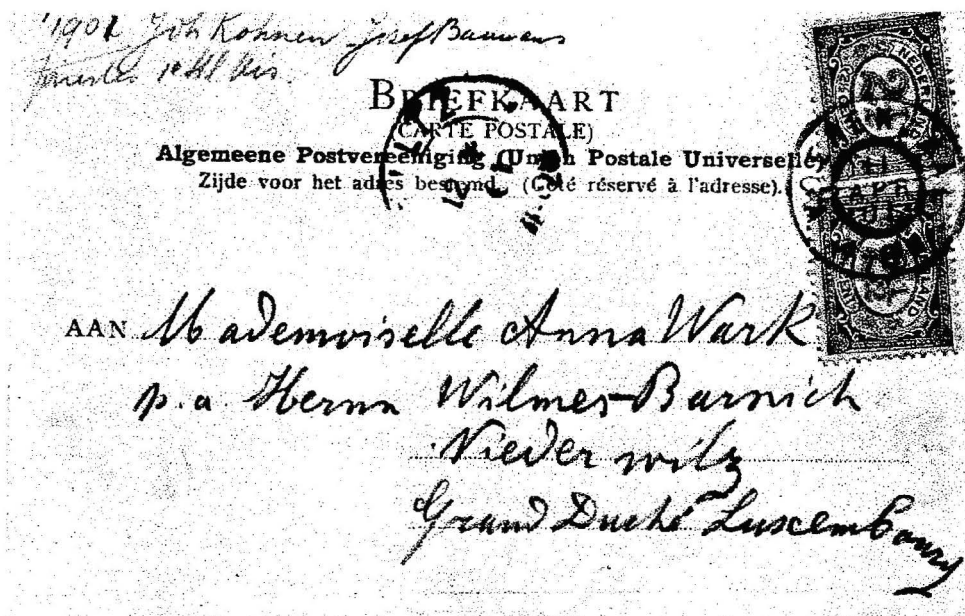 1901 Joh Kohnen Josef Bauwens
BRIEFKAART
(CARTE POSTALE)
Algemeene Postvereeniging (Union Postale Universelle)
Zijde voor het adres bestemd. (Côté réservé à l'adresse).
AAN Mademoiselle Anna Wark
p.a. Herrn Wilmes-Barnich
Niederwilz
Grand Duché Luxembourg